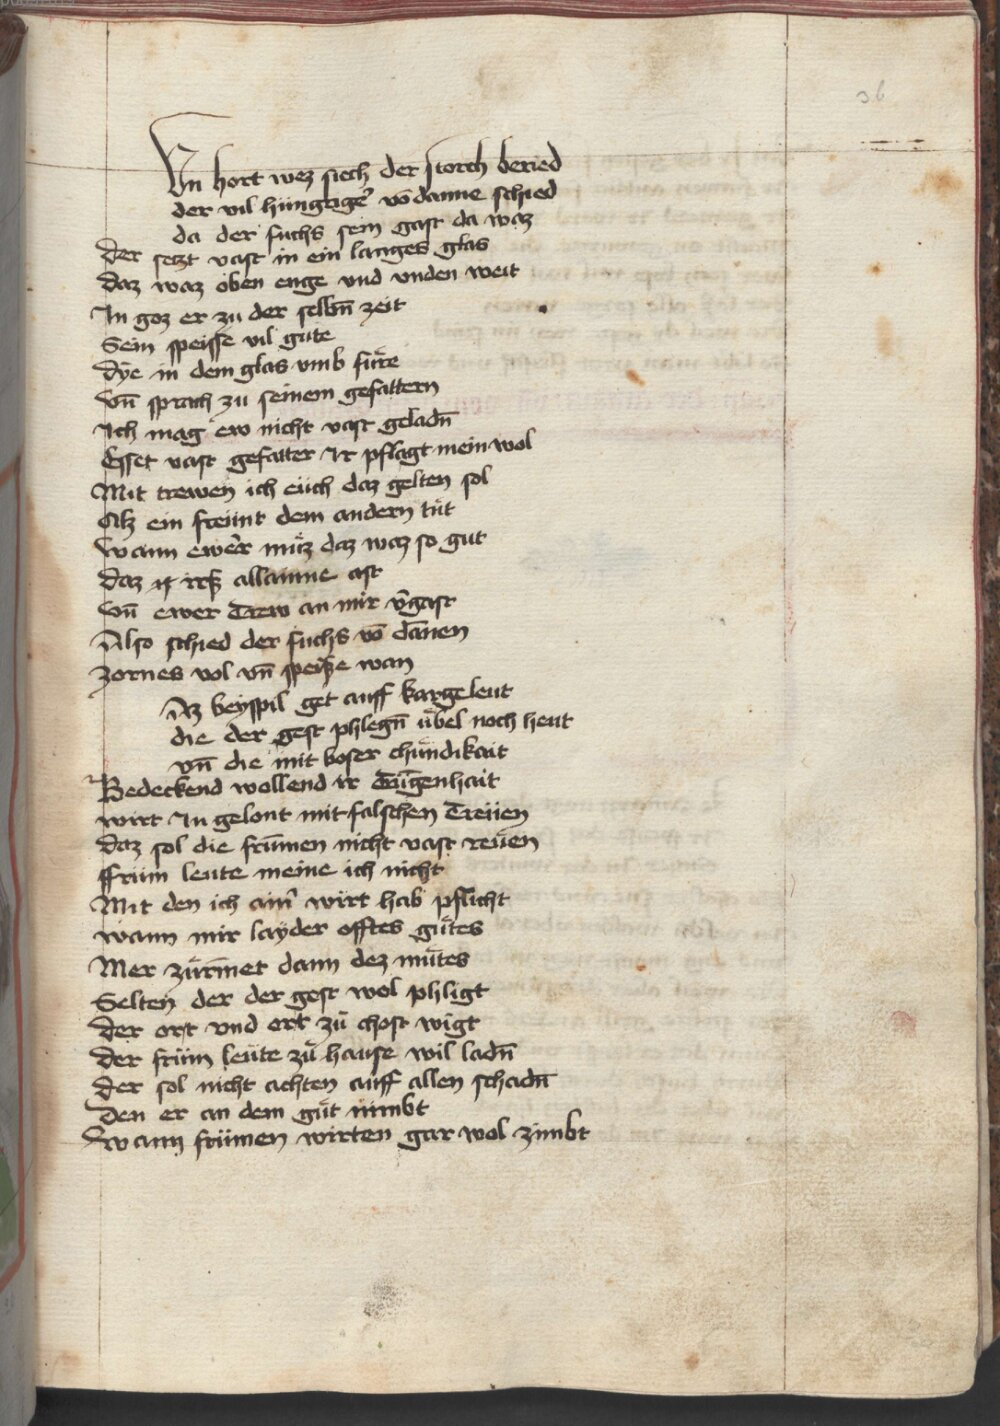 36
Un hort wez siech der storch beried
der vil hungrige᷑ vō danne schied
da der fuchs sein gast da waz
Der setzt vast in ein langes glas
Daz waz oben enge vnd vnden weit
In goz er zu der selbn̄ zeit
Sein speisse vil gute
Dÿe in dem glas vmb fu̇re
Vn̄ sprach zu seinem gefattern
Ich mag ew nicht vast geladn̄
Esset vast gefatter Ir pflagt mein wol
Mit trewen ich eüch daz gelten sol
Alz ein freünt dem andern tüt
Wann ewer mu̇z daz waz so gut
Daz allainne ast
Vn̄ ewer Trew an mir v̄gast
Also schied der fuchs vō dānen
Zornes vol vn̄ speiße wan
Az beyspil get auff karge leut
die der gest phlegn̄ übel noch heut
vn̄ die mit boser chündikait
Bedeckend wollend ir Tūgenhait
wirt In gelont mit falschen Treüen
Daz sol die frümen nicht vast reüen
ffrum leute meine ich nicht
Mit den ich aim̄ wirt hab pflicht
Wann mir layder offtes gütes
Mer zürīnet dann dez mütes
Selten der der gest wol phligt
Der ort vnd ort zü chost wigt
Der früm leüte zü hause wil ladn̄
Der sol nicht achten auff allen schadn̄
Den er an dem güt nimbt
Wann frümen wirten gar wol zimbt